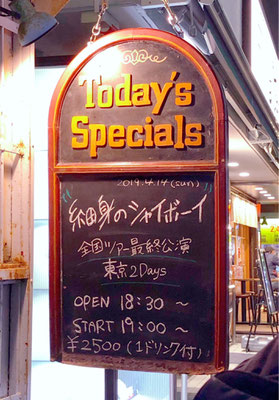 Today's
Specials
2019.4.14(sun)
細身のシャイボーイ
全国ツアー最終公演
東京2Days
OPEN 18:30 ~
START 19:00 ~
¥2500 (1ドリンク付)